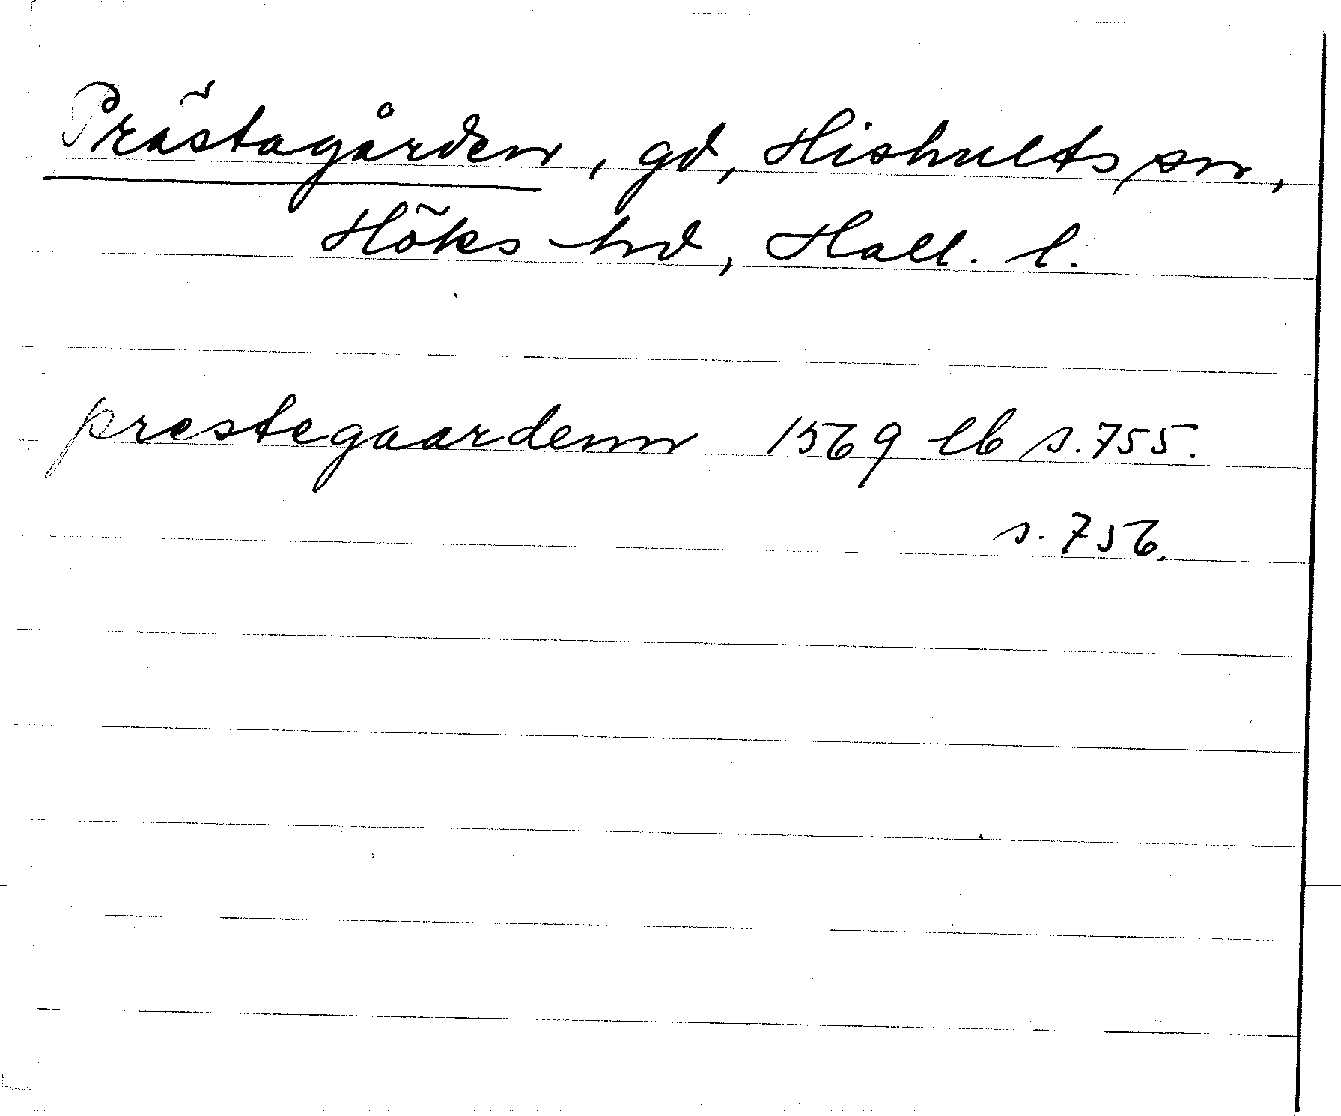 Prästagården, gd, Hishults sn,
Höks hd, Hall. l.
prestegaardenn 1569 lb s.755.
s.756.